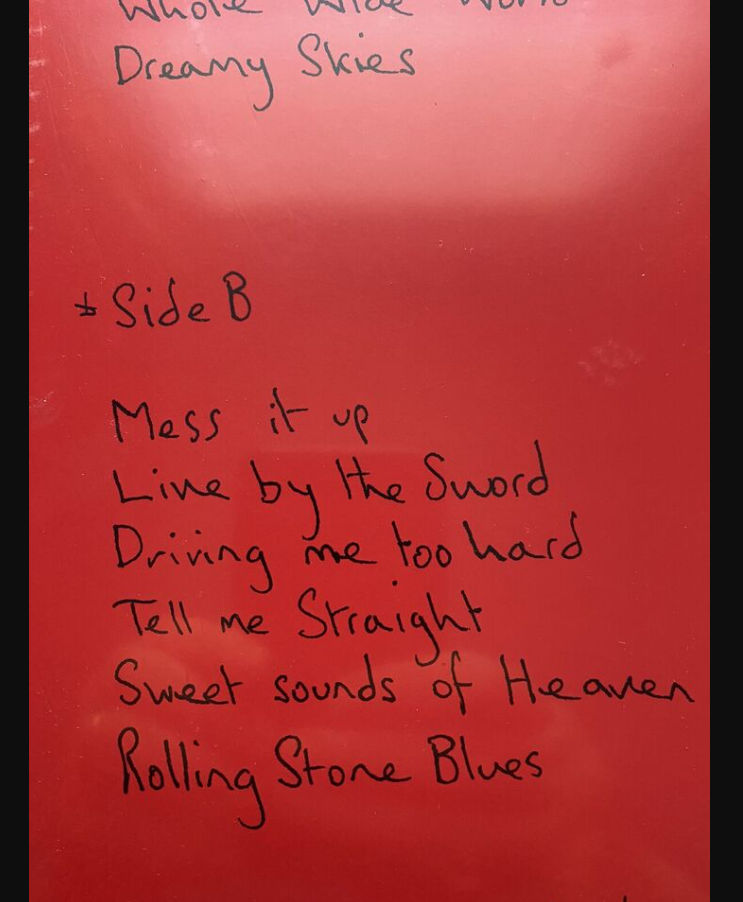 Whole Wide World
Dreamy Skies
* Side B
Mess it up
Live by the Sword
Driving me too hard
Tell me Straight
Sweet sounds of Heaven
Rolling Stone Blues